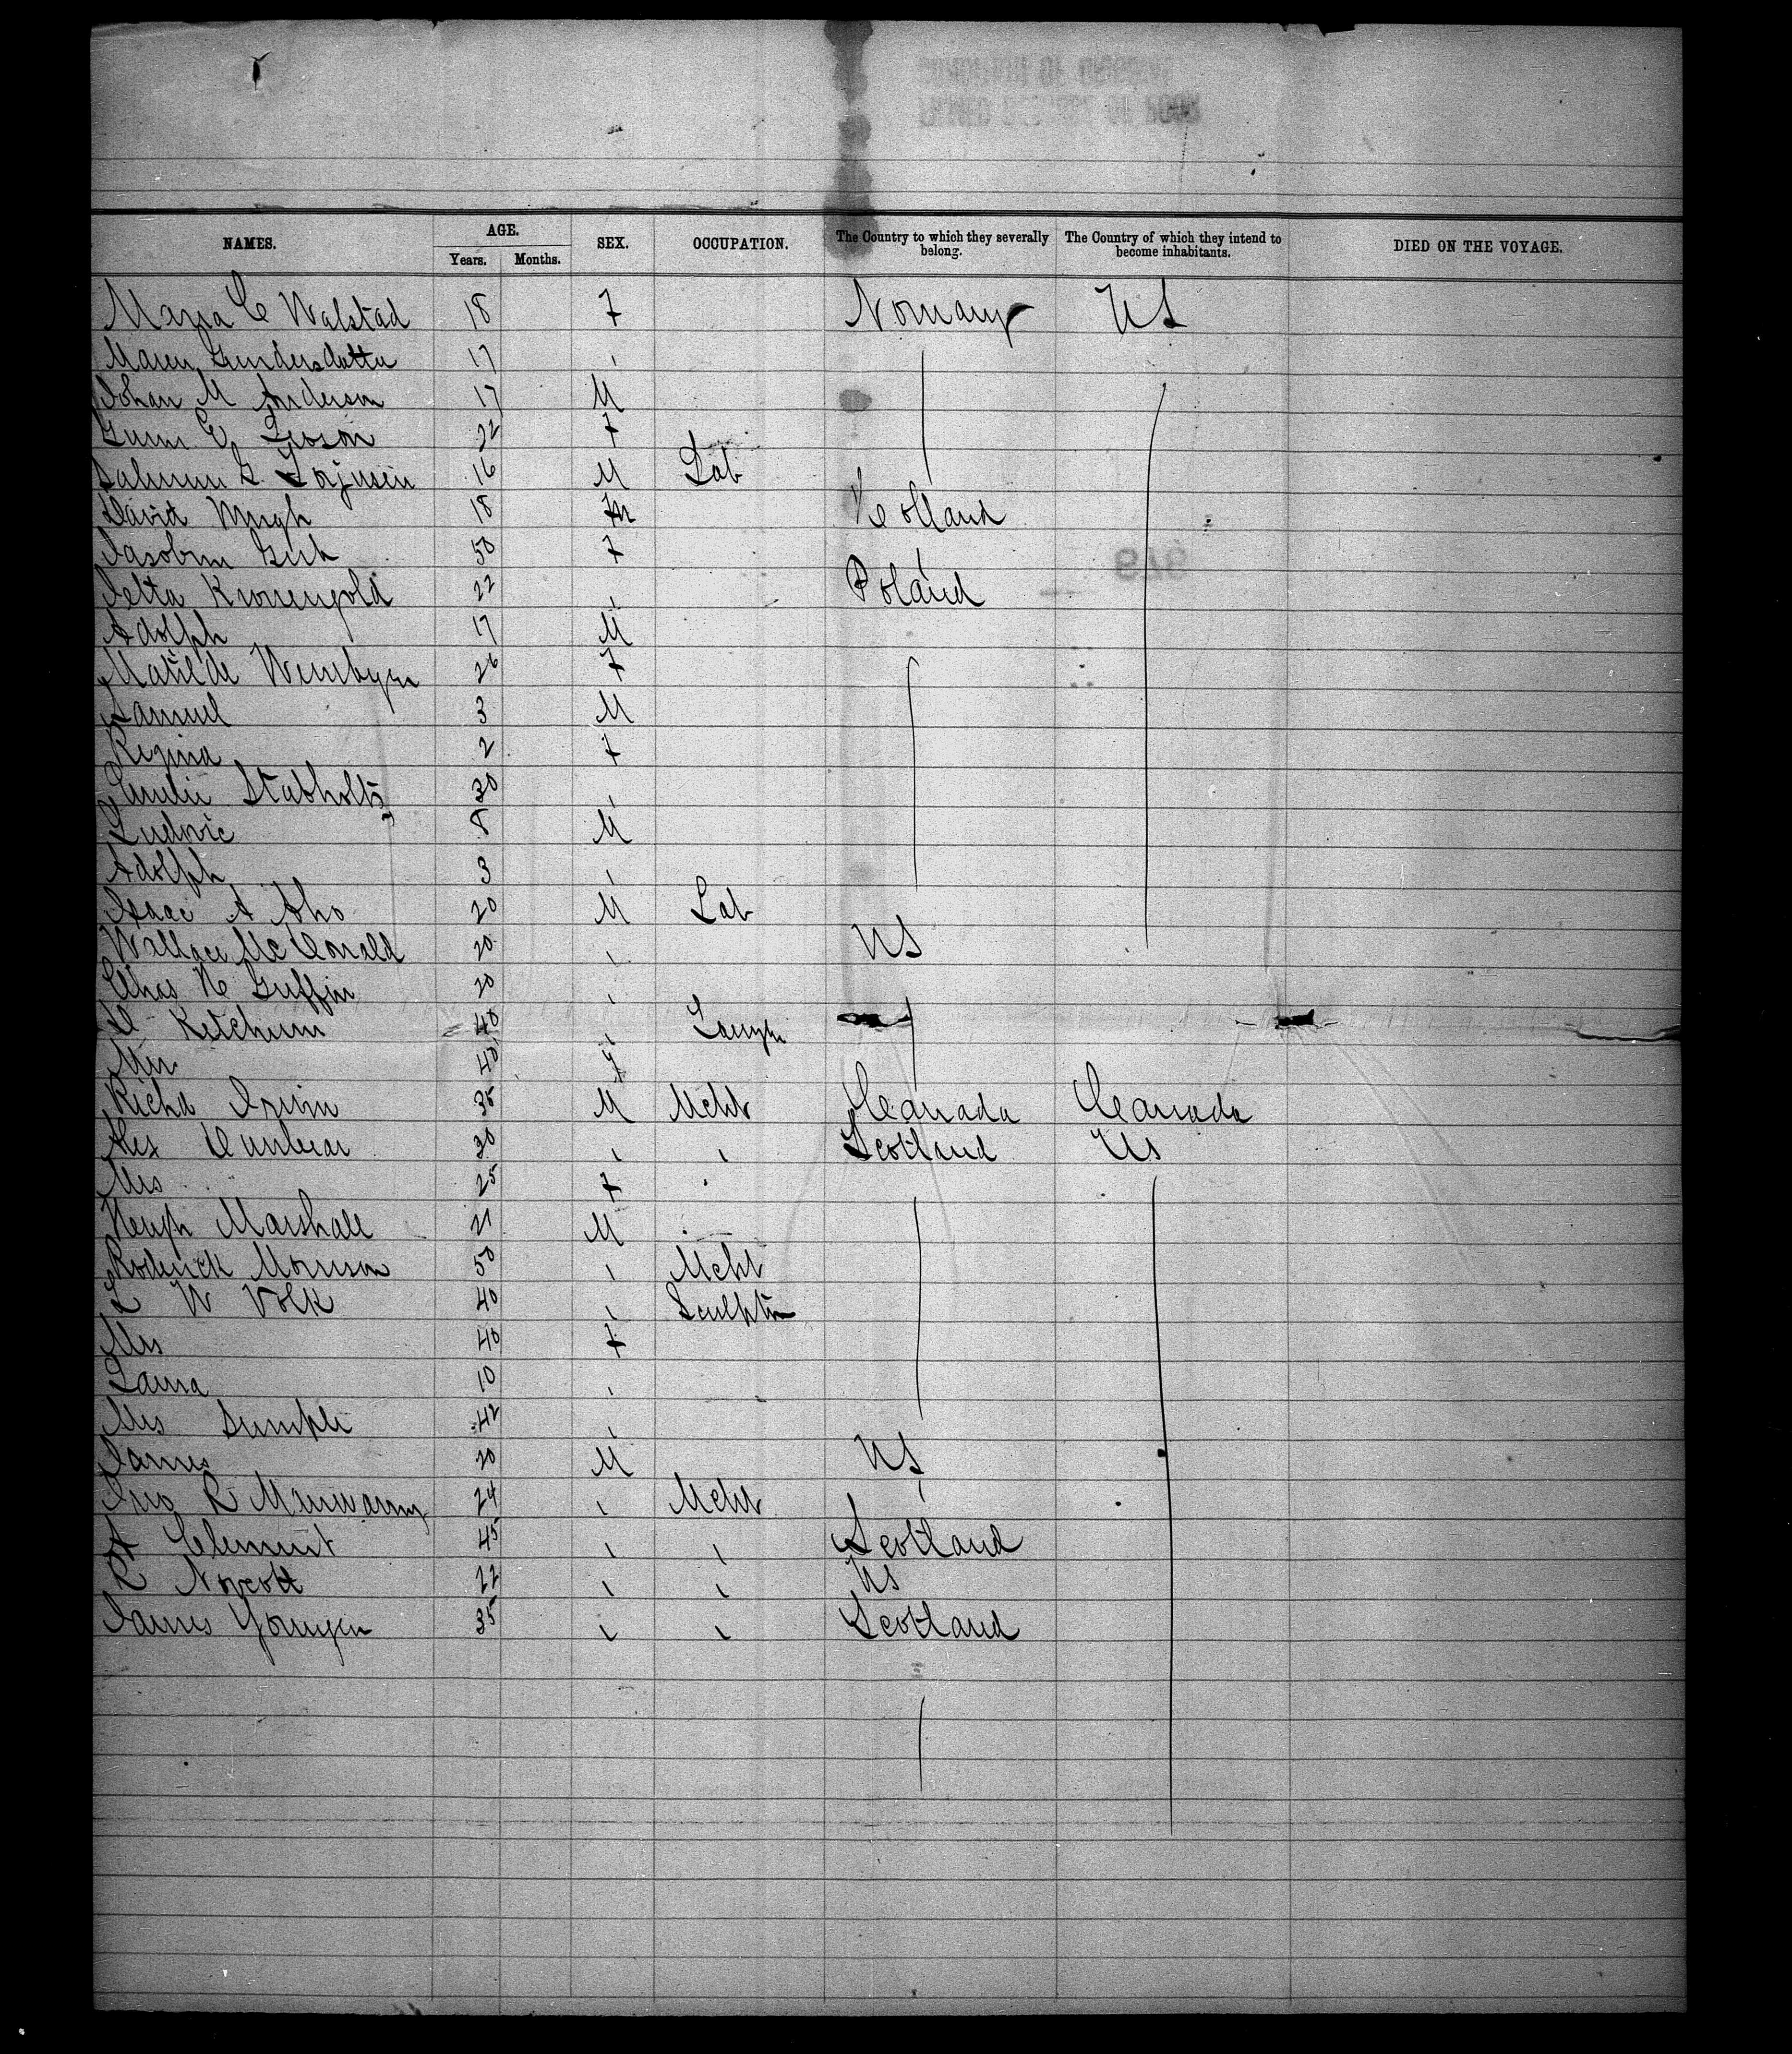 NAMES. AGE. SEX. OCCUPATION. The Country to which they severally belong. The Country of which they intend to become inhabitants. DIED ON THE VOYAGE.
Years. Months.
Maria C Walstad 18 F Norway US
Maren Gundersdatter 17 "
Johan M Anderson 17 M
22 F
16 M Lab
David 18 M Holland
50 F "
Kronengold 22 " Poland
Adolph 17 M
Matilde 26 F
Samuel 3 M
Regina 2 F
Emilie Stabholtz 30 "
Ludovic 8 M
Adolph 3 "
Isaac A Aho 20 M Lab
Wallace McDonald 20 " US
Chas H Griffin 20 "
Ketchum 40 " Lawyer
Mrs 40 F
Richd Irvin 35 M Mcht Canada Canada
Alex Dunbar 30 " " Scotland US
Mrs 25 F "
Hugh Marshall 21 M
Roderick Morrison 50 " Mcht
L W Volk 40 " Sculptor
Mrs 40 F
Laura 10 "
Mrs Semple 42 "
James 20 M US
Jno R Manwaring 24 " Mcht "
A Clement 45 " " Scotland
R Norcott 22 " " US
James Younger 35 " " Scotland